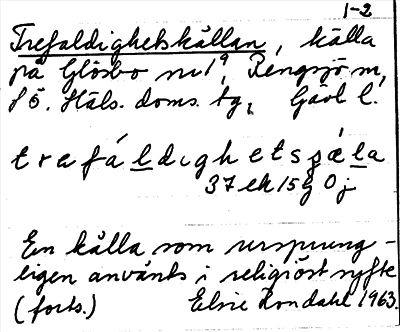 1-2
Trefaldighetskällan, källa
på Glösbo nr 1⁹, Rengsjö sn,
f ö. Häls. doms. tg, Gävl l.
trefáldighetsçæ̀la
37 ek 15g 0j
En källa som ursprung-
ligen använts i religiöst syfte
(forts.) Elsie Rondahl 1963.